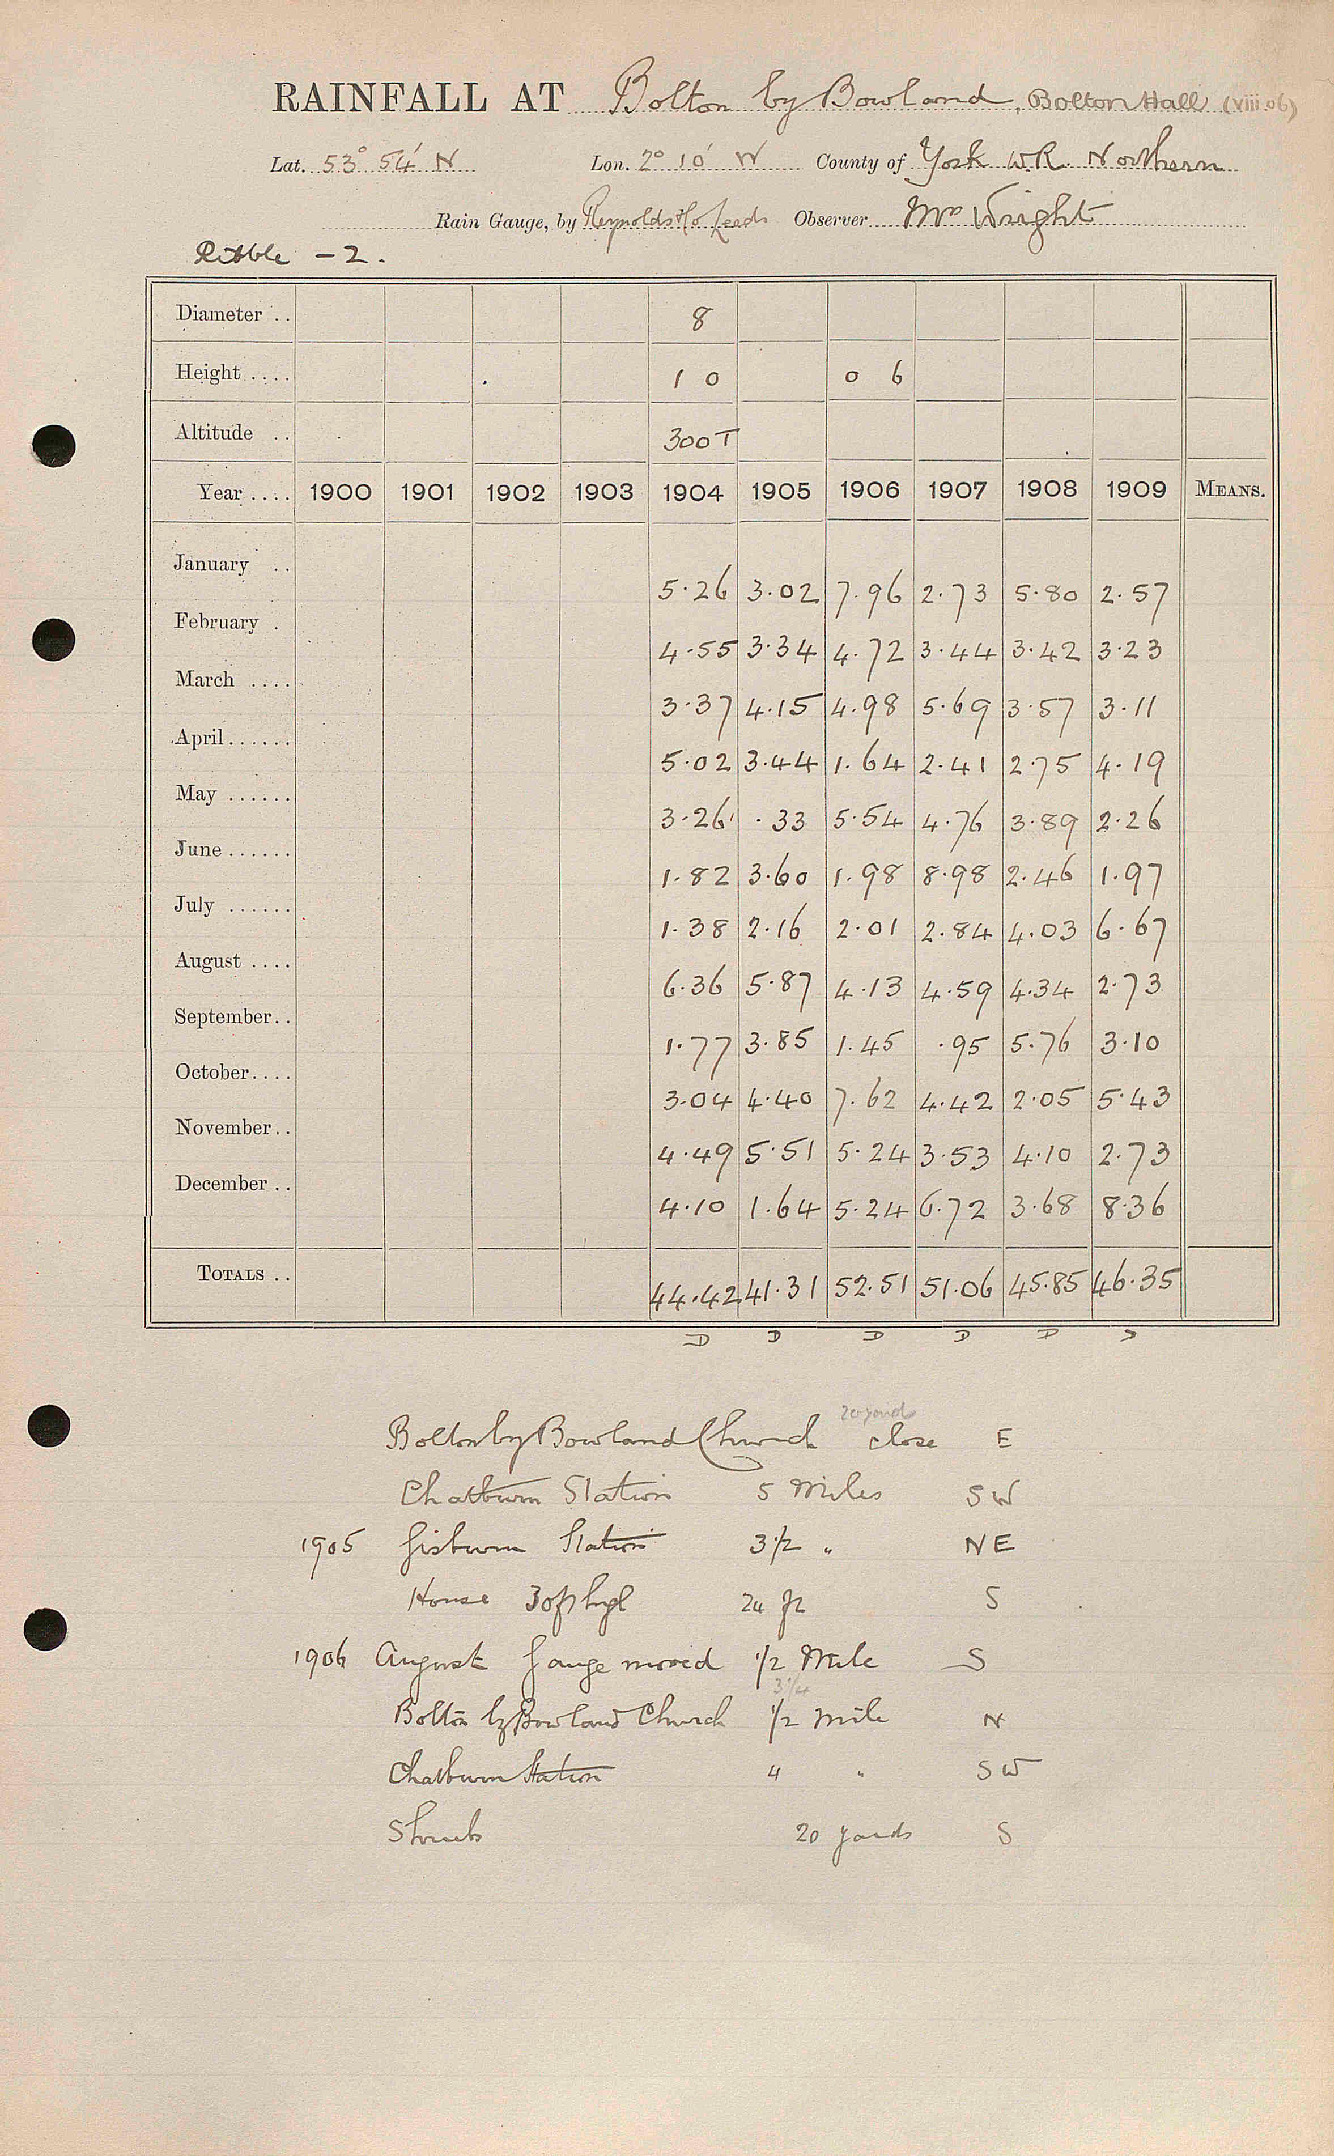 RAINFALL AT Bolton by Bowland, Bolton Hall (viii 06)
Lat. 53° 54' N Lon. 2° 10' W County of York W.R. Northern
Rain Gauge, by Reynolds & Co Leeds Observer Mr Wright
Ribble - 2.
Diameter .. 8
Height .... 1 0 0 6
Altitude .. 300 T
Year .... 1900 1901 1902 1903 1904 1905 1906 1907 1908 1909 MEANS.
January .. 5.26 3.02 7.96 2.73 5.80 2.57
February . 4.55 3.34 4.72 3.44 3.42 3.23
March .... 3.37 4.15 4.98 5.69 3.57 3.11
April...... 5.02 3.44 1.64 2.41 2.75 4.19
May ...... 3.26 .33 5.54 4.76 3.89 2.26
June...... 1.82 3.60 1.98 8.98 2.46 1.97
July ...... 1.38 2.16 2.01 2.84 4.03 6.67
August .... 6.36 5.87 4.13 4.59 4.34 2.73
September.. 1.77 3.85 1.45 .95 5.76 3.10
October.... 3.04 4.40 7.62 4.42 2.05 5.43
November.. 4.49 5.51 5.24 3.53 4.10 2.73
December .. 4.10 1.64 5.24 6.72 3.68 8.36
TOTALS .. 44.42 41.31 52.51 51.06 45.85 46.35
D D D D D D
20 yards
Bolton by Bowland Church close E
Chatburn Station 5 Miles SW
1905 Gisburn Station 3 1/2 " NE
House 30 ft high 24 ft S
1906 August Gauge moved 1/2 Mile S
3/4
Bolton by Bowland Church 1/2 Mile N
Chatburn Station 4 " SW
Shrubs 20 yards S